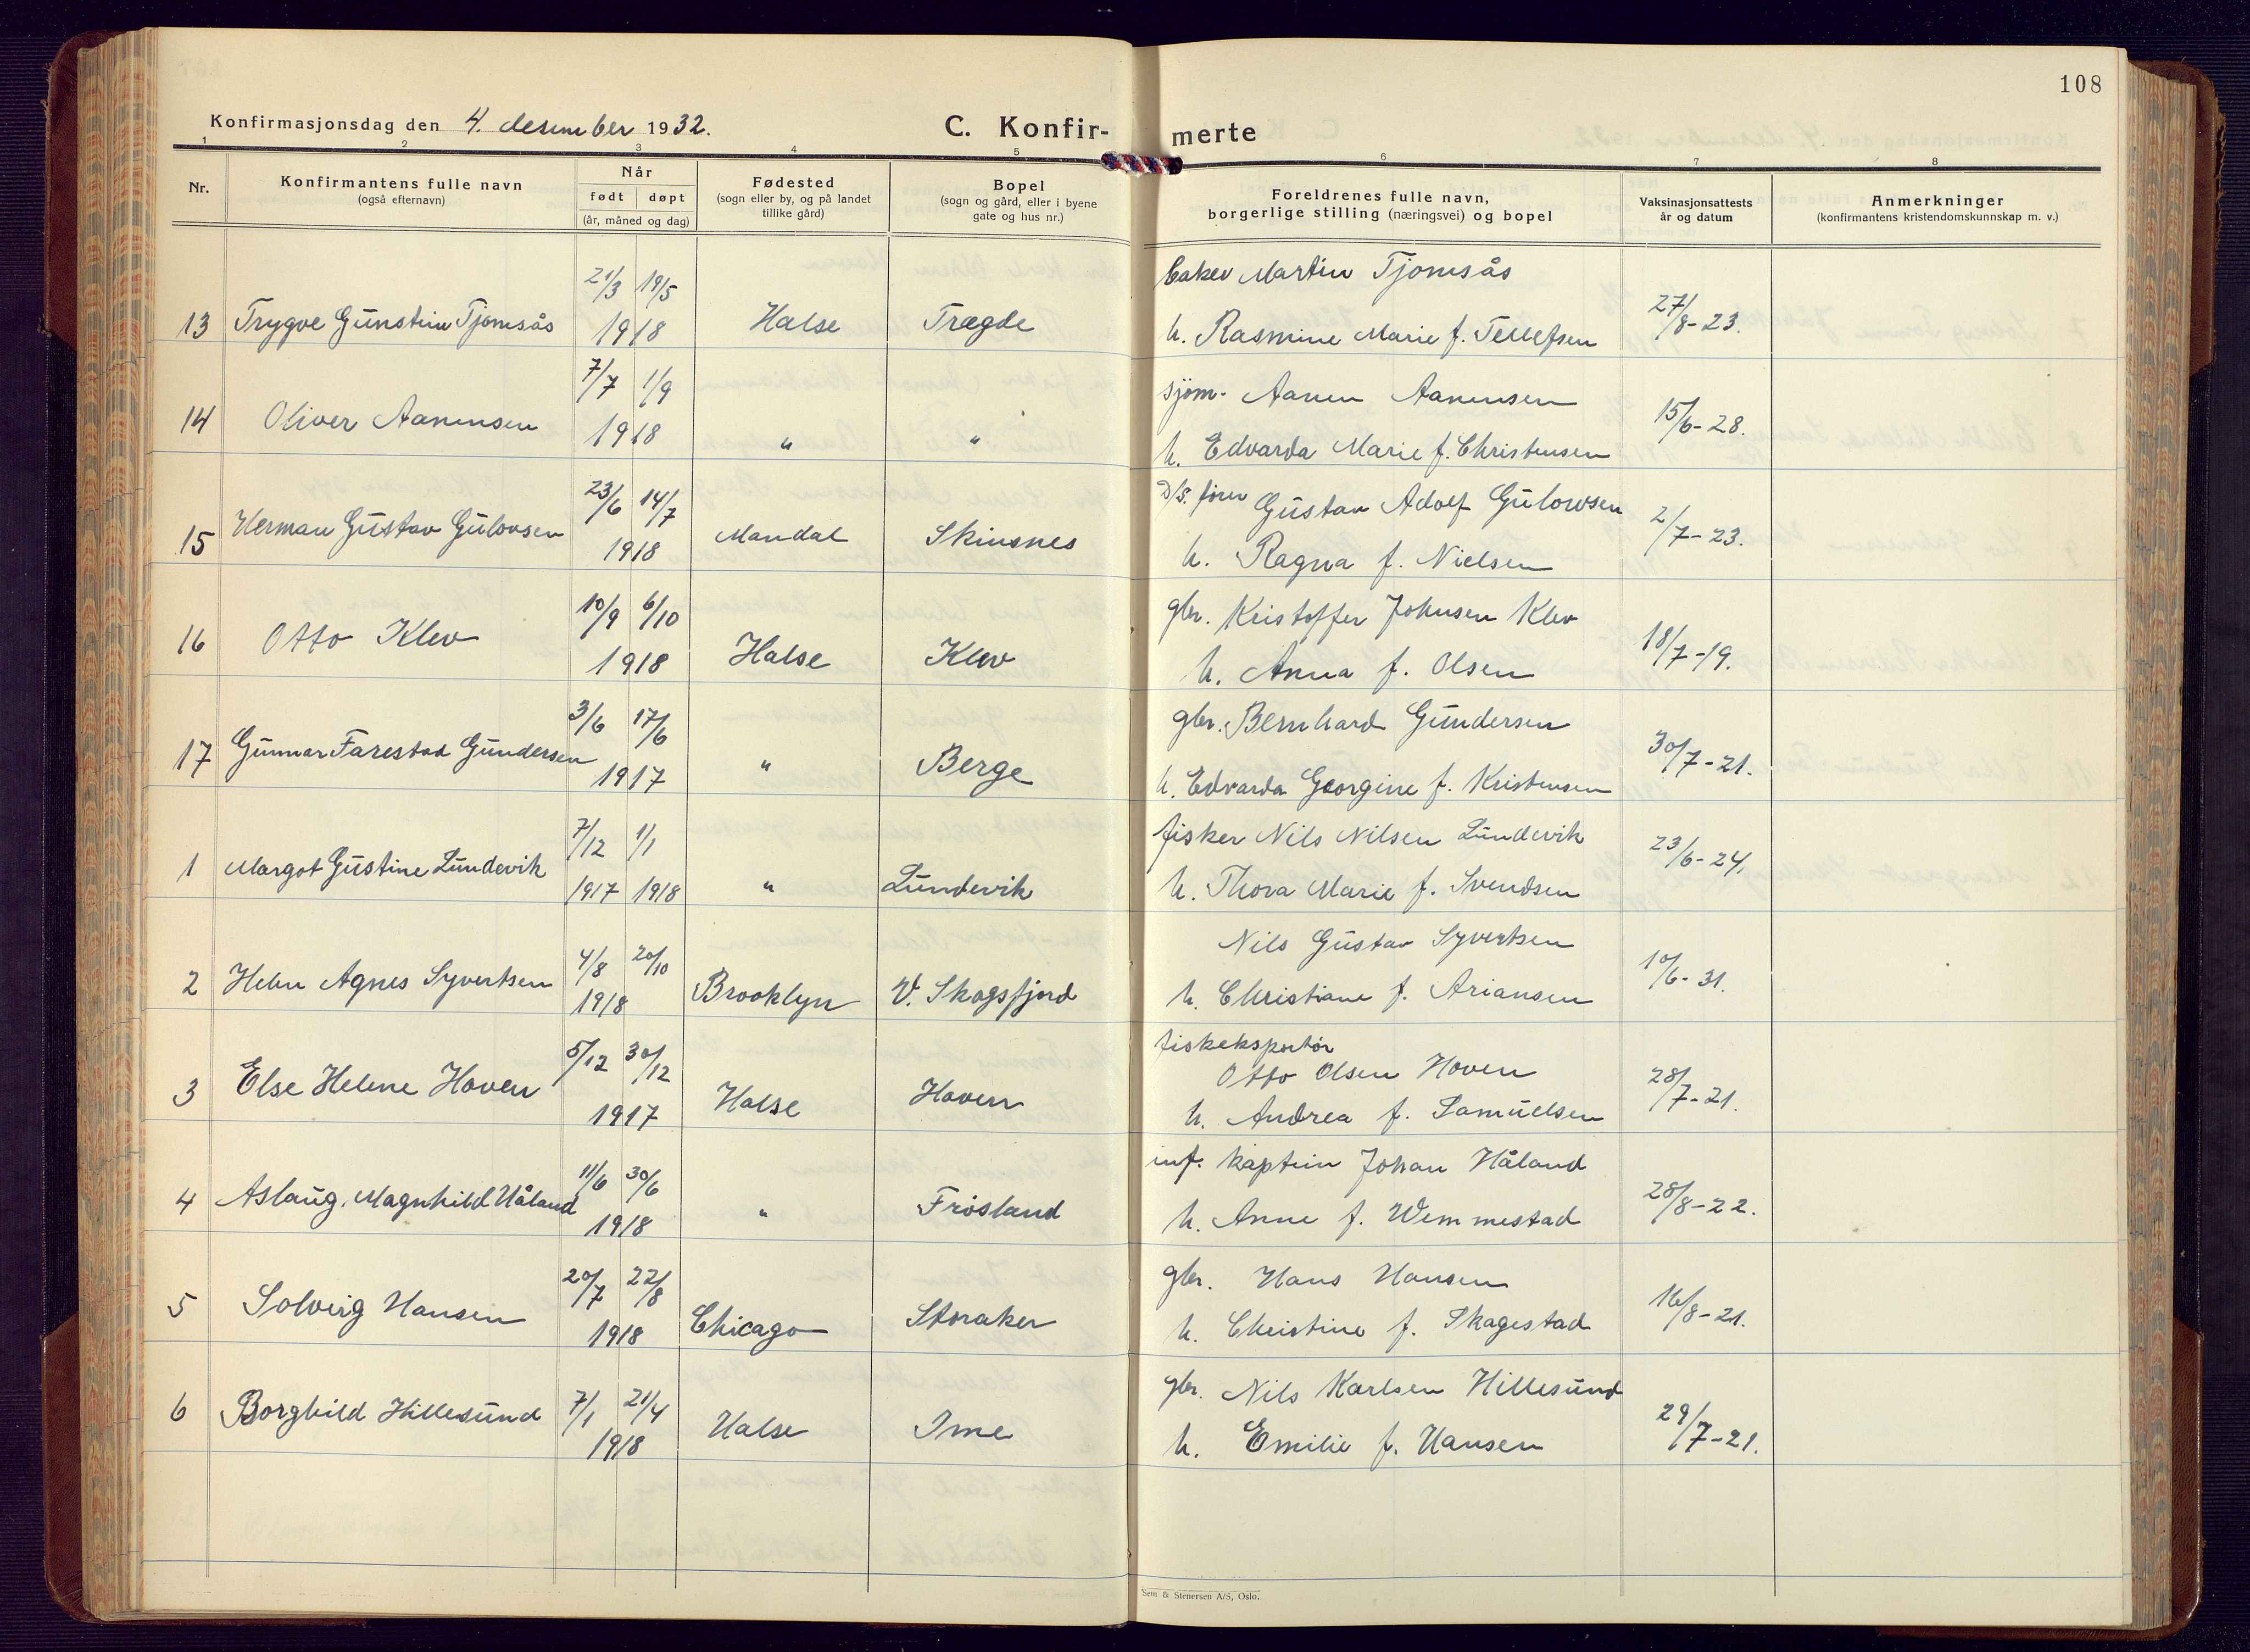 108
Konfirmasjonsdag den 4. desember 1932.
C. Konfir- merte
1 2 3 4 5 6 7 8
Nr.
Konfirmantens fulle navn
(også efternavn)
Når
født døpt
(år, måned og dag)
Fødested
(sogn eller by, og på landet
tillike gård)
Bopel
(sogn og gård, eller i byene
gate og hus nr.)
Foreldrenes fulle navn,
borgerlige stilling (næringsvei) og bopel
Vaksinasjonsattests
år og datum
Anmerkninger
(konfirmantens kristendomskunnskap m. v.)
21/3 19/5 baker Martin Tjomsås
13 Trygve Gunstein Tjomsås 1918 Halse Trægde h. Rasmine Marie f. Tellefsen 27/8-23.
7/7 1/9 sjøm. Aanen Aanensen
14 Oliver Aanensen 1918 " " h. Edvarda Marie f. Christensen 15/6-28.
23/6 14/7 D/S. fører Gustav Adolf Gulowsen
15 Herman Gustav Gulowsen 1918 Mandal Skinsnes h. Ragna f. Nielsen 2/7-23.
10/9 6/10 gbr. Kristoffer Johnsen Klev
16 Otto Klev 1918 Halse Klev h. Anna f. Olsen 18/7-19.
3/6 17/6 gbr. Bernhard Gundersen
17 Gunnar Farestad Gundersen 1917 " Berge h. Edvarda Georgine f. Kristensen 30/7-21.
7/12 1/1 fisker Nils Nilsen Lundevik
1 Margot Gustine Lundevik 1917 1918 " Lundevik h. Thora Marie f. Svendsen 23/6-24.
4/8 20/10 Nils Gustav Syvertsen
2 Helen Agnes Syvertsen 1918 Brooklyn V. Skogsfjord h. Christiane f. Ariansen 10/6-31.
5/12 30/12 fiskeksportør
Otto Olsen Hoven
3 Else Helene Hoven 1917 Halse Hoven h. Andrea f. Samuelsen 28/7-21.
11/6 30/6 inf. kaptein Johan Håland
4 Aslaug Magnhild Håland 1918 " Frøsland h. Anne f. Wemmestad 28/8-22.
20/7 22/8 gbr. Hans Hansen
5 Solveig Hansen 1918 Chicago Støraker h. Christine f. Skagestad 16/8-21.
7/1 21/4 gbr. Nils Karlsen Hillesund
6 Borghild Hillesund 1918 Halse Ime h. Emilie f. Hansen 29/7-21.
Sem & Stenersen A/S, Oslo.